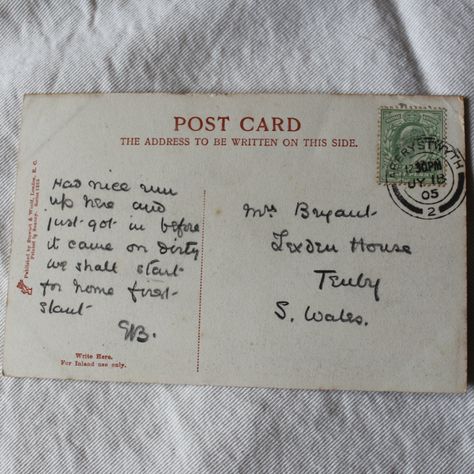 POST CARD
THE ADDRESS TO BE WRITTEN ON THIS SIDE.
ABERYSTWYTH
JY 18
05
2
Published by Stewart & Woolf, London, E.C.
Printed in Saxony.
Had nice run
up here and
just got in before
it came on dirty
we shall start
for home first
start
EB.
Write Here.
For Inland use only.
Mrs Bryant
Lexden House
Tenby
S. Wales.